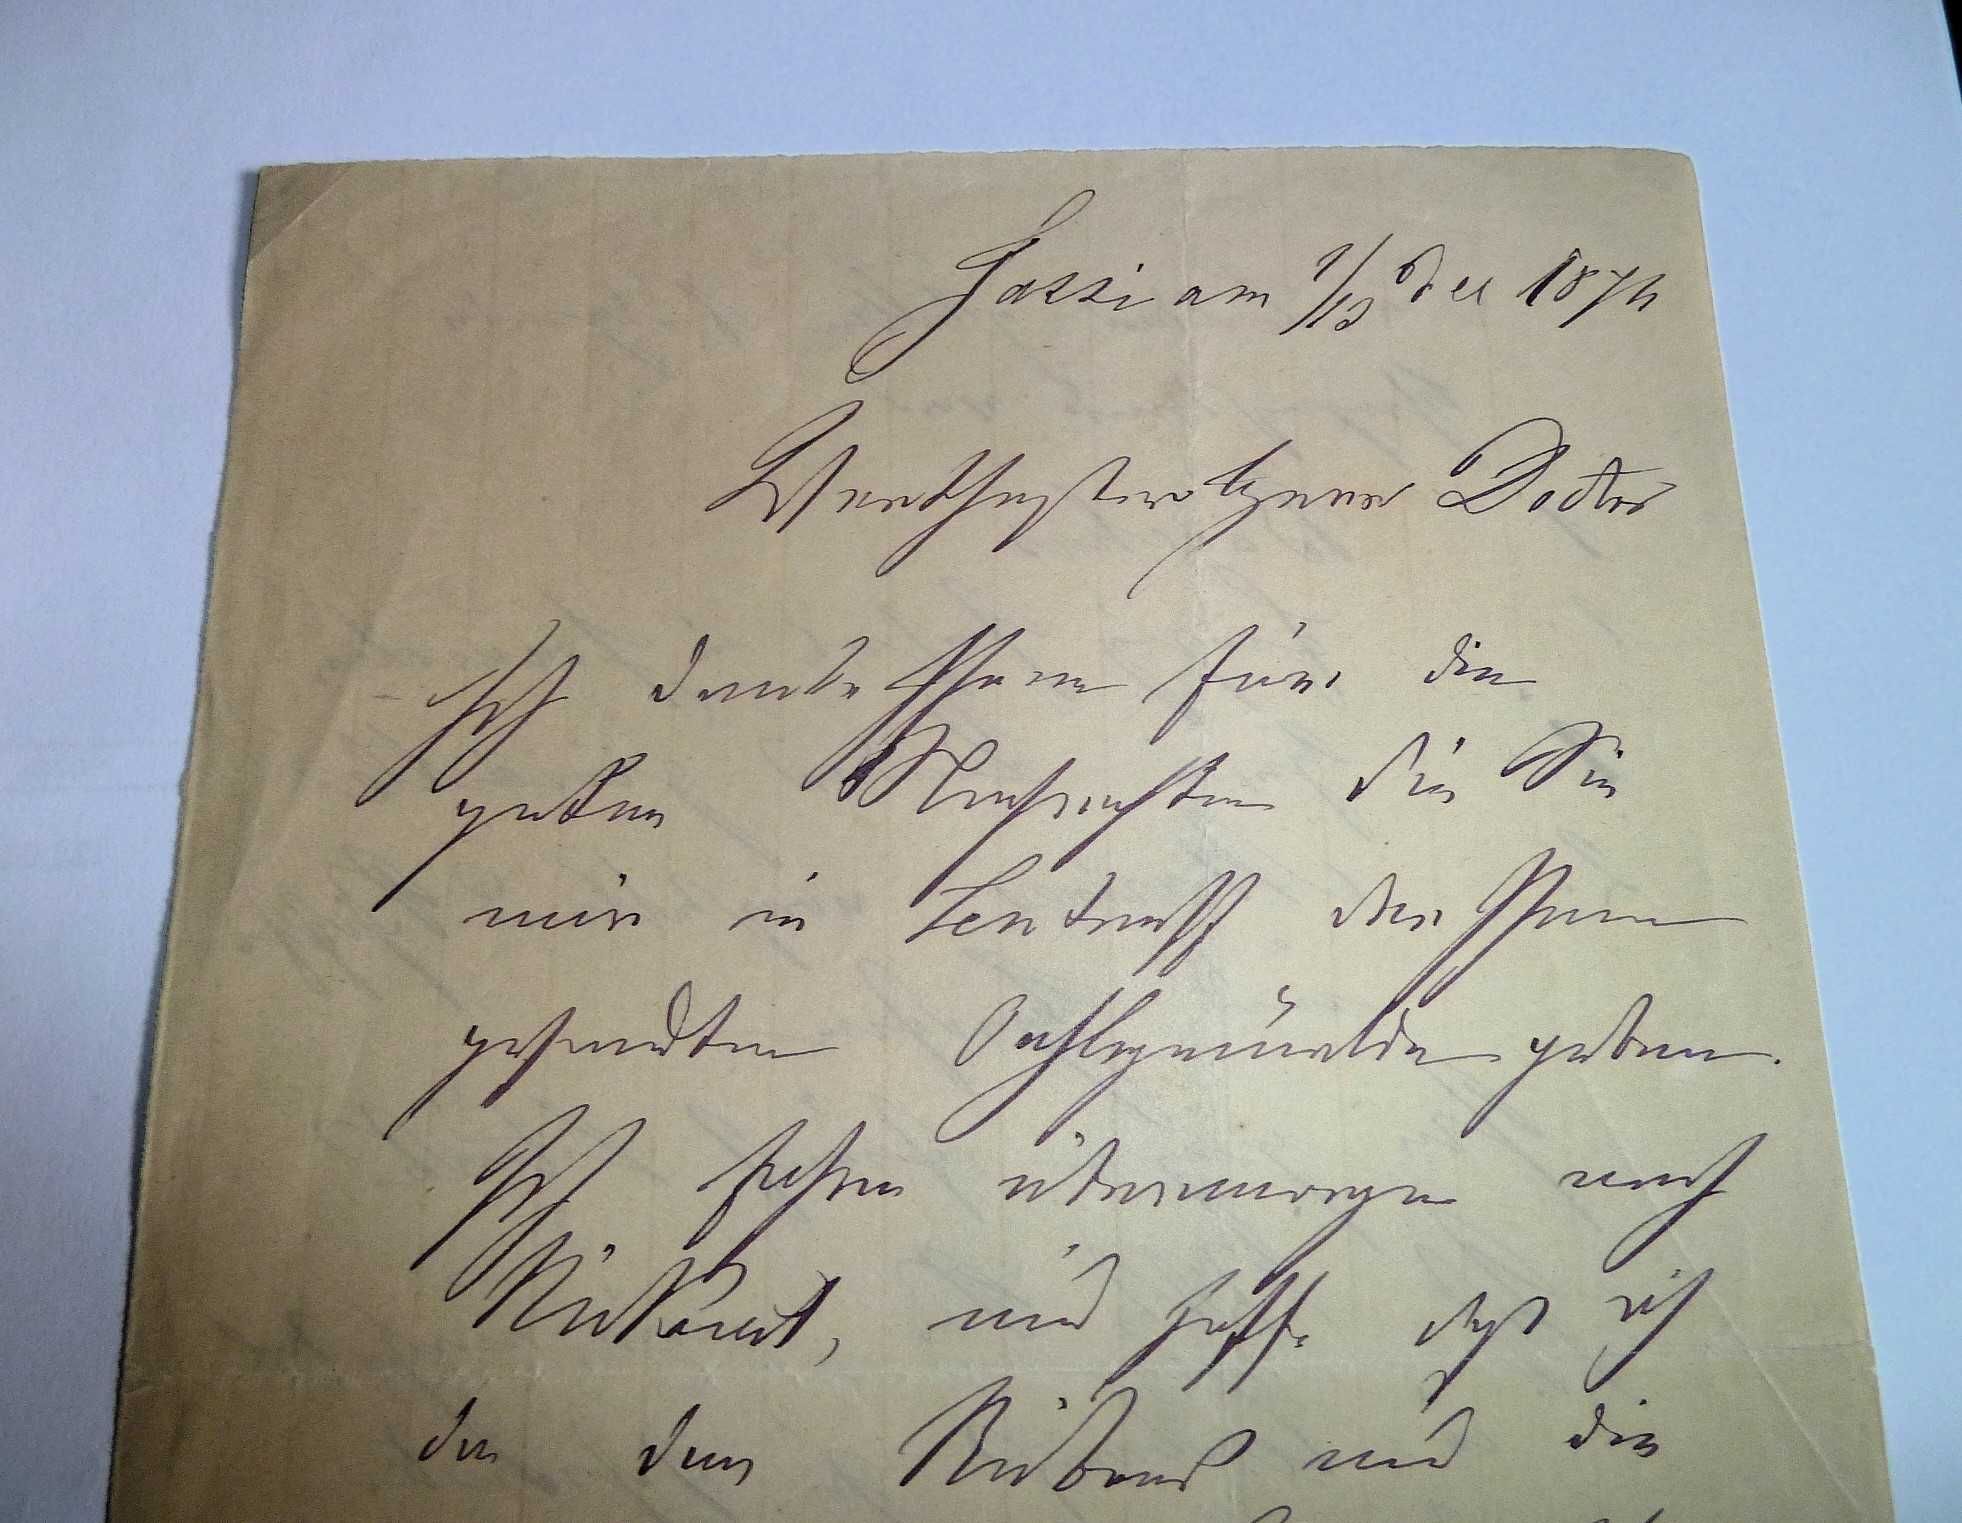 Jassi am 1/13 Oct 1874
Werthester Herr Doctor
Ich danke Ihnen für die
guten Nachrichten die Sie
mir in betreff der Ihnen
gesendten Oehlgemälde geben.
Ich fahre übermorgen nach
und hoffe daß ich
den Rubens und die